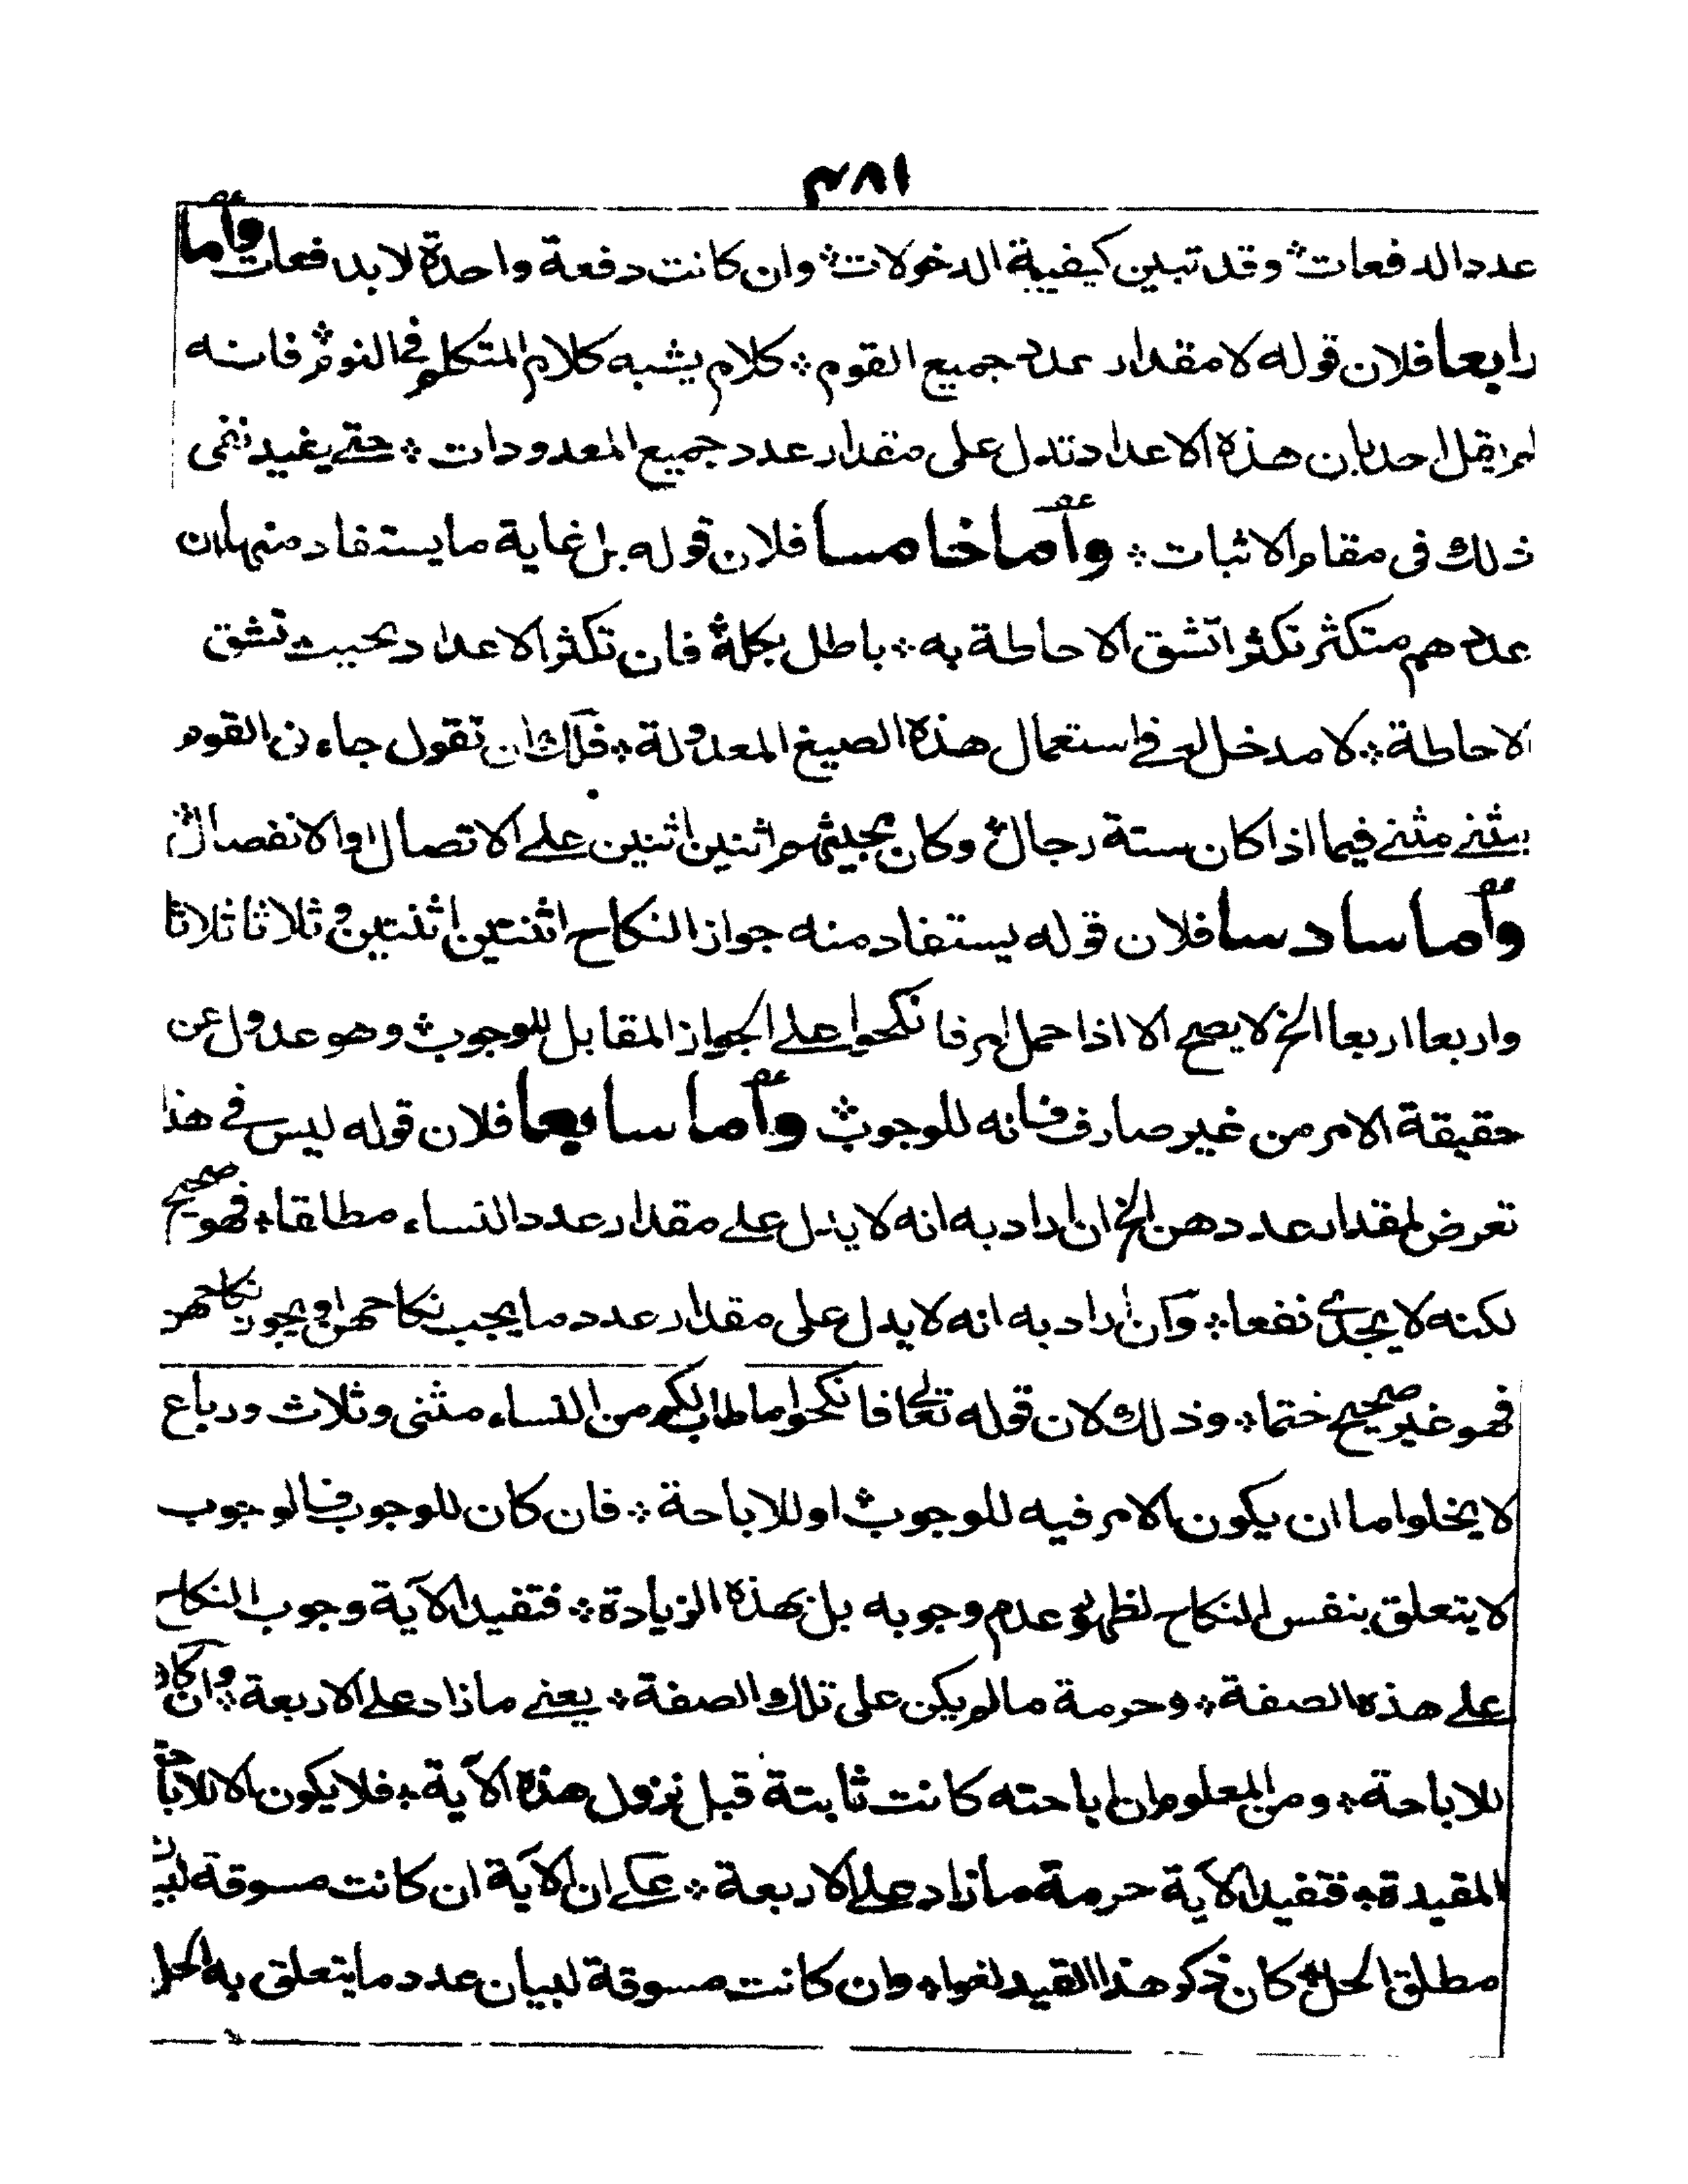 ١٨٣
عدد الدفعات ⁘ وقد تبين كيفية الدخولات ⁘ وان كانت دفعة واحدة لا بدفعات وأما
رابعا فلان قوله لا مقدار عدد جميع القوم ⁘ كلام يشبه كلام المتكلم فى النوم ⁘ فانه
لم يقل احد بان هذه الاعداد تدل على مقدار عدد جميع المعدودات ⁘ حتى يفيد نفى
ذلك فى مقام الاثبات ⁘ وأما خامسا فلان قوله بل غاية ما يستفاد منها ان
عددهم متكثر تكثرا تشق الاحاطة به ⁘ باطل بجملة فان تكثر الاعداد بحيث تشق
الاحاطة ⁘ لا مدخل له فى استعمال هذه الصيغ المعدولة ⁘ فلك ان تقول جاءنى القوم
مثنى مثنى فيما اذا كان ستة رجال ⁘ وكان مجيئهم اثنين اثنين على الاتصال او الانفصال ⁘
وأما سادسا فلان قوله يستفاد منه جواز النكاح اثنتين اثنتين و ثلاثا ثلاثا
واربعا اربعا الخ لا يصح الا اذا حمل امر فانكحوا على الجواز المقابل للوجوب ⁘ وهو عدول عن
حقيقة الامر من غير صارف فانه للوجوب ⁘ وأما سابعا فلان قوله ليس فى هذا
تعرض لمقدار عددهن الخ ان اراد به انه لا يدل على مقدار عدد النساء مطلقا ⁘ فهو صحيح
لكنه لا يجدى نفعا ⁘ وان اراد به انه لا يدل على مقدار عدد ما يجب نكاحهن او يجوز نكاحهن
فهو غير صحيح ختما ⁘ وذلك لان قوله تعالى فانكحوا ما طاب لكم من النساء مثنى وثلاث ورباع
لا يخلوا ما ان يكون الامر فيه للوجوب ⁘ او للاباحة ⁘ فان كان للوجوب فالوجوب
لا يتعلق بنفس النكاح لظهور عدم وجوبه بل بهذه الزيادة ⁘ فتفيد الآية وجوب النكاح
على هذه الصفة ⁘ وحرمة ما لم يكن على تلك الصفة ⁘ يعنى ما زاد على الاربعة ⁘ وان كان
للاباحة ⁘ ومن المعلوم ان اباحته كانت ثابتة قبل نزول هذه الآية ⁘ فلا يكون الا للاباحة
المقيدة ⁘ فتفيد الآية حرمة ما زاد على الاربعة ⁘ على ان الآية ان كانت مسوقة لبيان
مطلق الحل ⁘ كان ذكر هذا القيد لغوا ⁘ وان كانت مسوقة لبيان عدد ما يتعلق به الحل